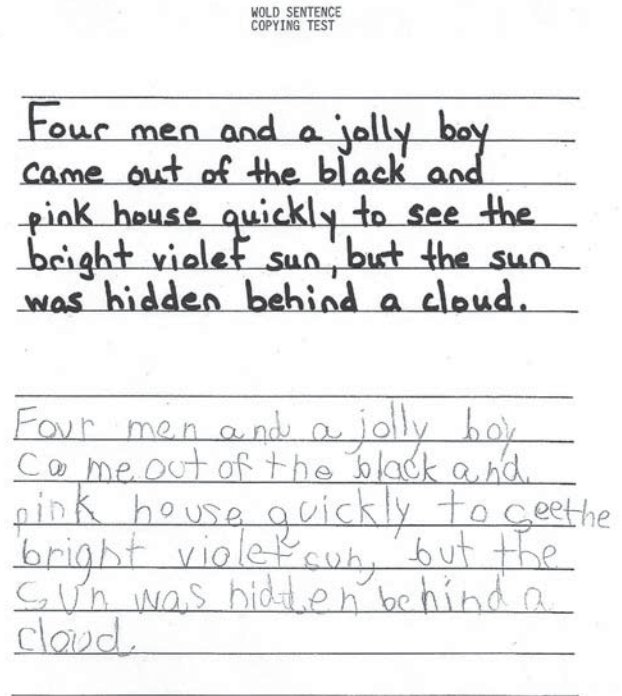 WOLD SENTENCE
COPYING TEST
Four men and a jolly boy
came out of the black and
pink house quickly to see the
bright violet sun, but the sun
was hidden behind a cloud.
Four men and a jolly boy
Came out of the black and
pink house quickly to seethe
bright violet sun, but the
sun was hidden behind a
cloud.